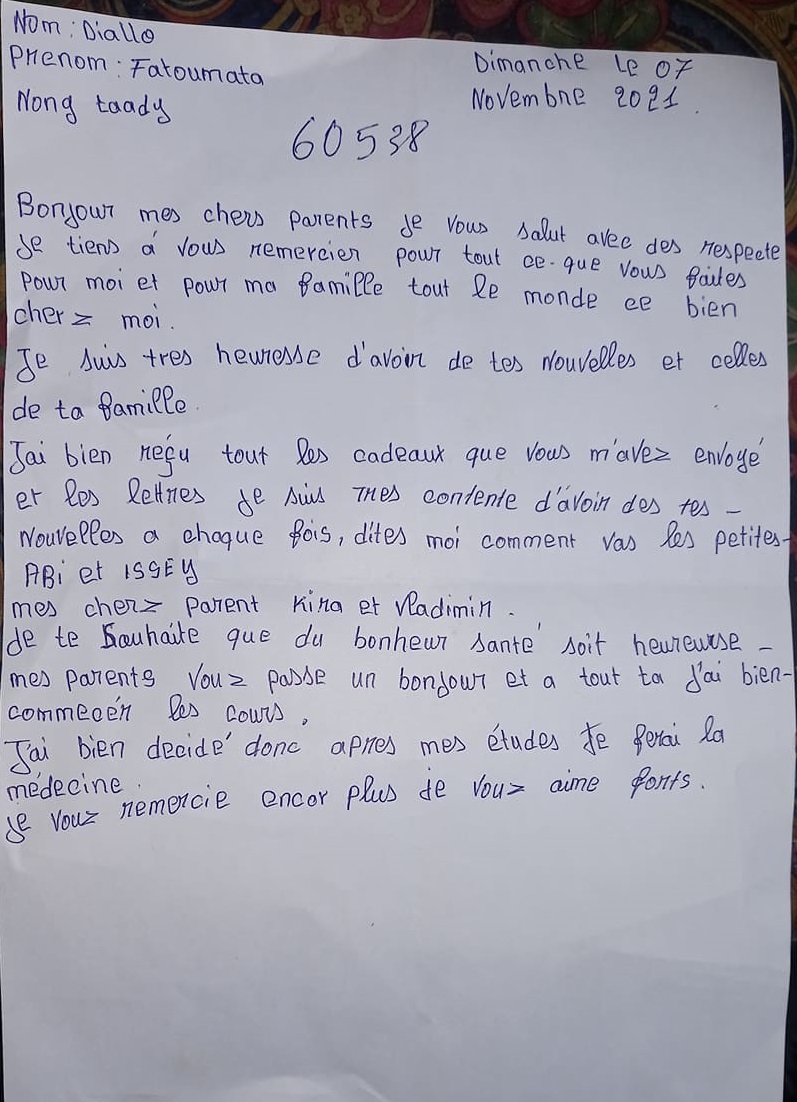 Nom : Diallo
Prenom : Fatoumata
Nong taady
Dimanche Le 07
Novembre 2021.
60538
Bonjour mes chers parents je vous salut avec des respecte
Je tiens à vous remercier pour tout ce-que vous faites
Pour moi et pour ma famille tout le monde ce bien
cherz moi.
Je suis tres heuresse d'avoir de tes Nouvelles et celles
de ta famille.
J'ai bien reçu tout les cadeaux que vous m'avez envoyé
et les lettres je suis Tres contente d'avoir des tes -
Nouvelles a chaque fois, dites moi comment vas les petites-
ABi et ISSEY
mes cherz parent Kira et Vladimir.
de te Souhaite que du bonheur santé soit heureuse -
mes parents Vouz passe un bonjour et a tout ta j'ai bien-
commecér les cours.
J'ai bien decidé donc apres mes études Je ferai la
médecine.
je vouz remercie encor plus je vouz aime forts.